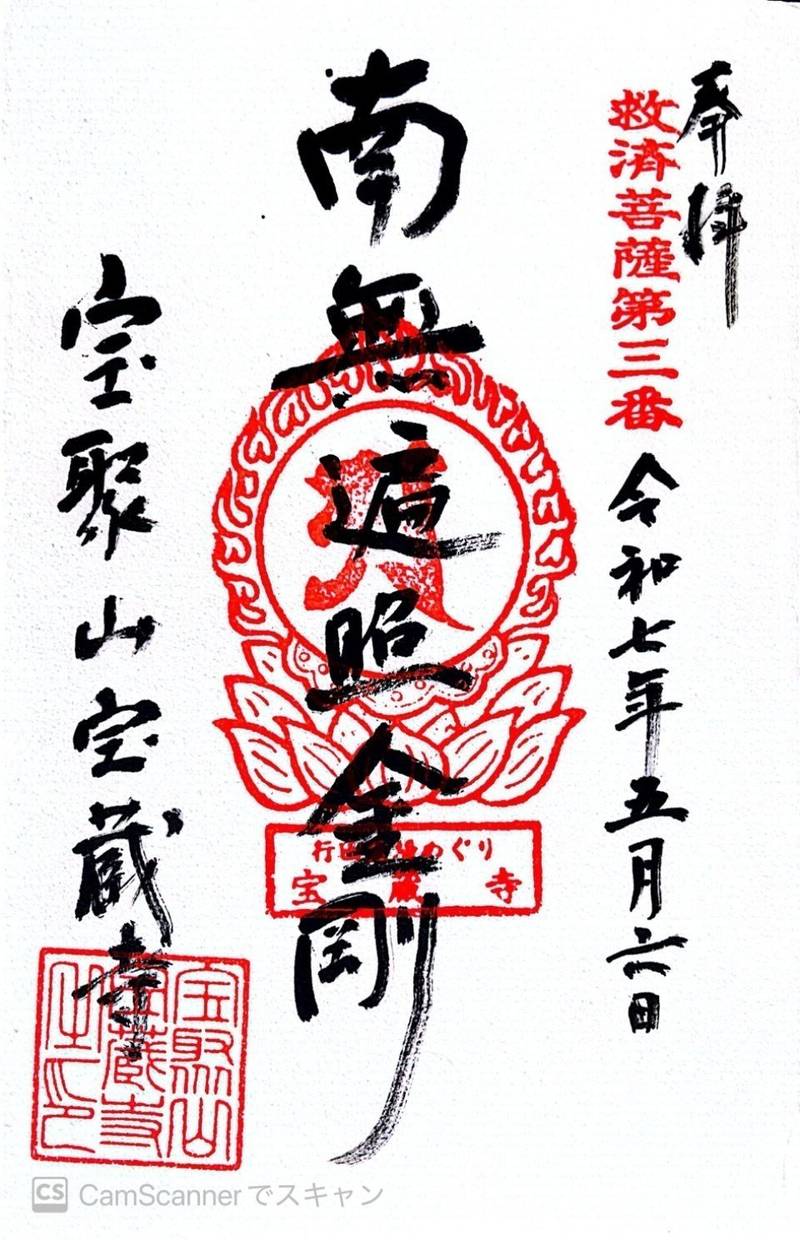 奉拝
救済菩薩第三番
令和七年五月六日
南無遍照金剛
めぐり
宝蔵寺
宝聚山宝蔵寺
宝聚山
宝蔵寺
之印
CS CamScanner でスキャン